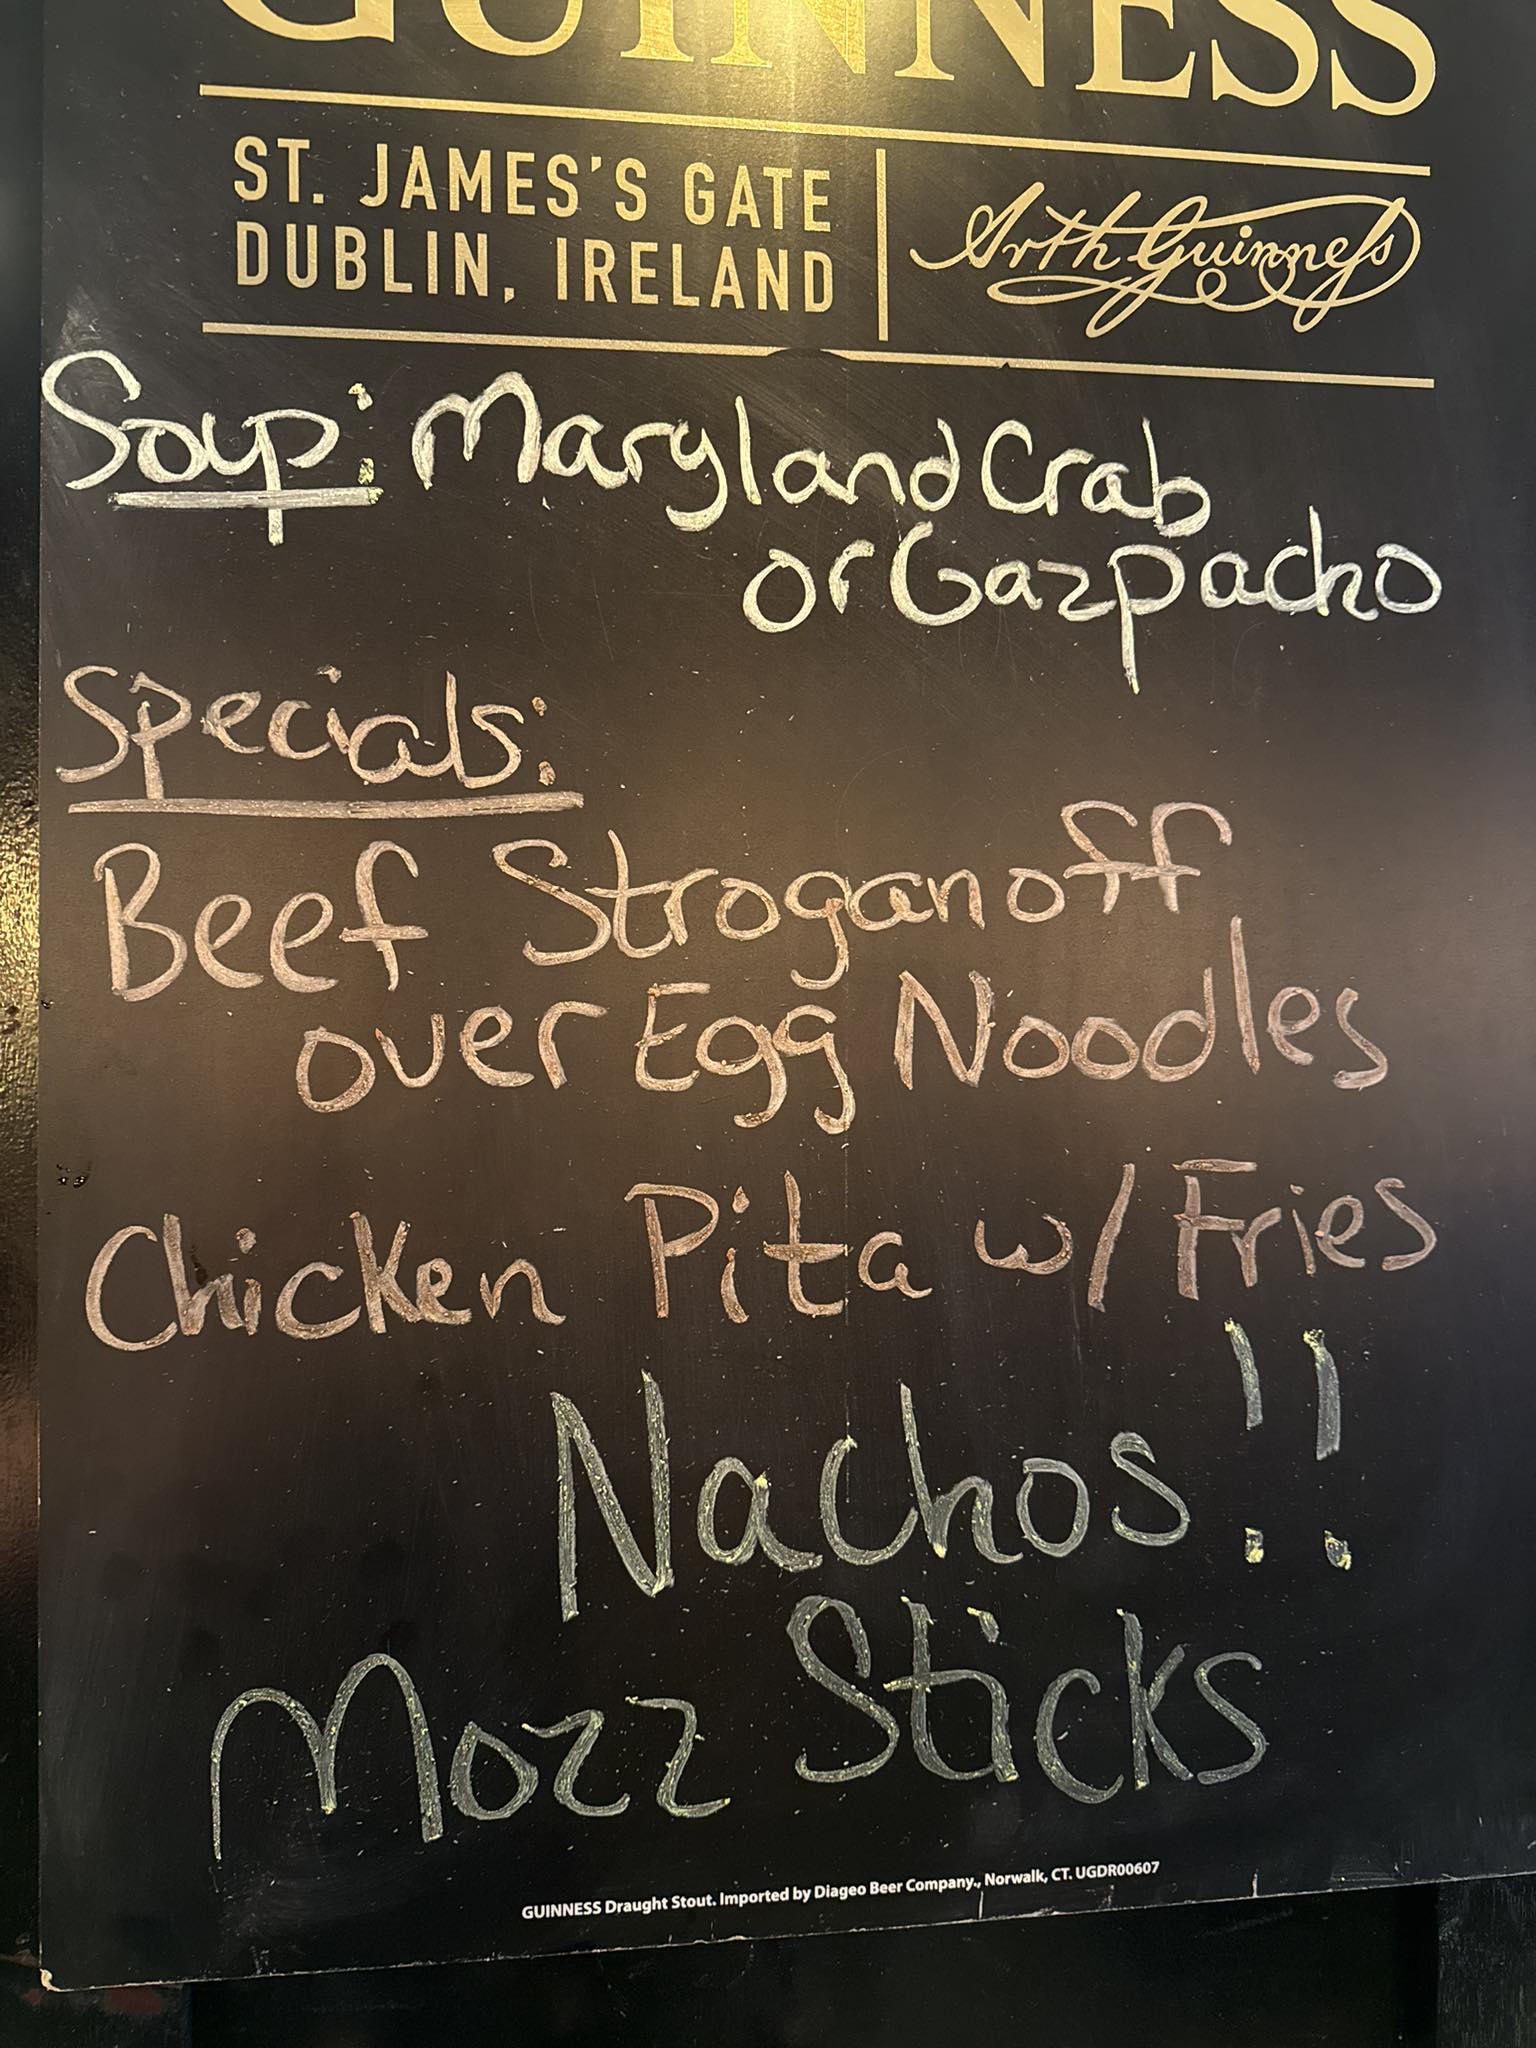 GUINNESS
ST. JAMES'S GATE
DUBLIN, IRELAND
Arth Guinness
Soup: Maryland Crab
or Gazpacho
Specials:
Beef Stroganoff
over Egg Noodles
Chicken Pita w/ Fries
Nachos!!
Mozz Sticks
GUINNESS Draught Stout. Imported by Diageo Beer Company., Norwalk, CT. UGDR00607